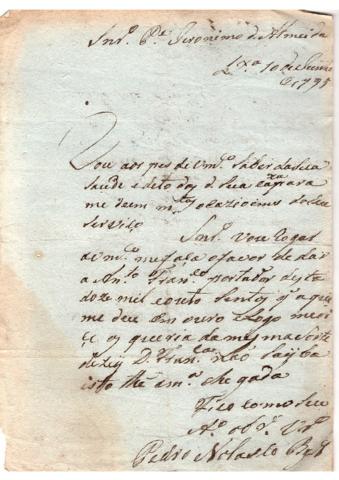 Snr. Pe. Jeronimo de Almeida
Lxa. 10 de Junho
1795
Vou aos pes de Vmce. saber da sua
saude e de todos d sua caza para
me derem mtos ocazioens do seu
serviso
Snr. vou rogar
a Vmce. me fasa o favor de dar
a Anto. Franco. portador desta
doze mil e outo sentos q aqui
me deu em ouro Logo
os queria da mesma sorte
D. Franca. não sayba
isto the a ma. chegada
Fico como seu
Ao. obr. Vor.
Pedro Nolasco